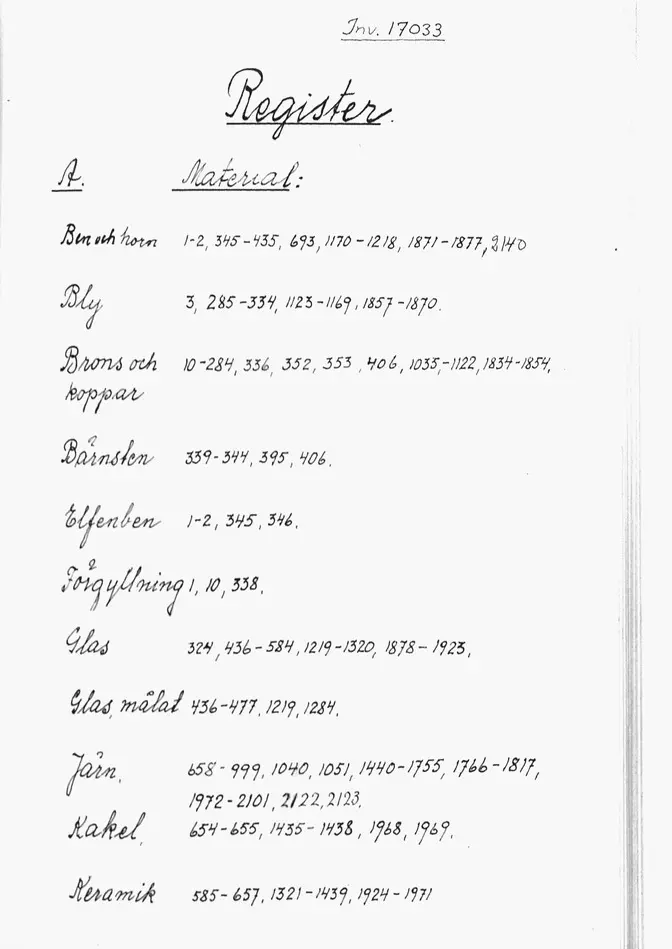 Inv. 17033
Register.
A. Material:
Ben och horn 1-2, 345-435, 693, 1170-1218, 1871-1877, 2140
Bly 3, 285-334, 1123-1169, 1857-1870.
Brons och 10-284, 336, 352, 353, 406, 1035-1122, 1834-1854,
koppar
Bärnsten 339-344, 395, 406.
Elfenben 1-2, 345, 346.
Förgyllning 1, 10, 338.
Glas 324, 436-584, 1219-1320, 1878-1923,
Glas, målat 436-477, 1219, 1284.
Järn, 658-999, 1040, 1051, 1440-1755, 1766-1817,
1972-2101, 2122, 2123.
Kakel, 654-655, 1435-1438, 1968, 1969.
Keramik 585-657, 1321-1439, 1924-1971